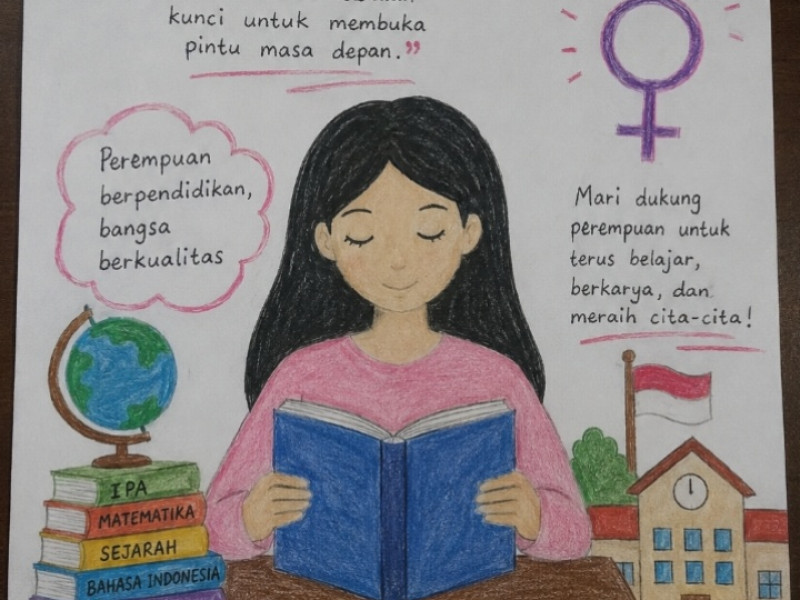 kunci untuk membuka
pintu masa depan.”
Perempuan
berpendidikan,
bangsa
berkualitas
Mari dukung
perempuan untuk
terus belajar,
berkarya, dan
meraih cita-cita!
IPA
MATEMATIKA
SEJARAH
BAHASA INDONESIA